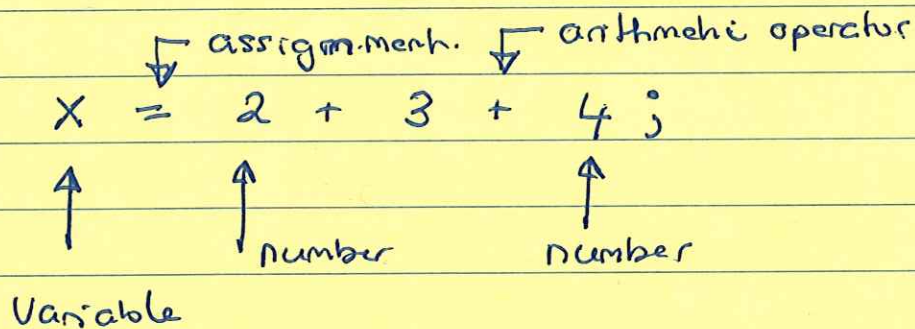 assignment. arithmetic operator
X = 2 + 3 + 4 ;
number number
Variable